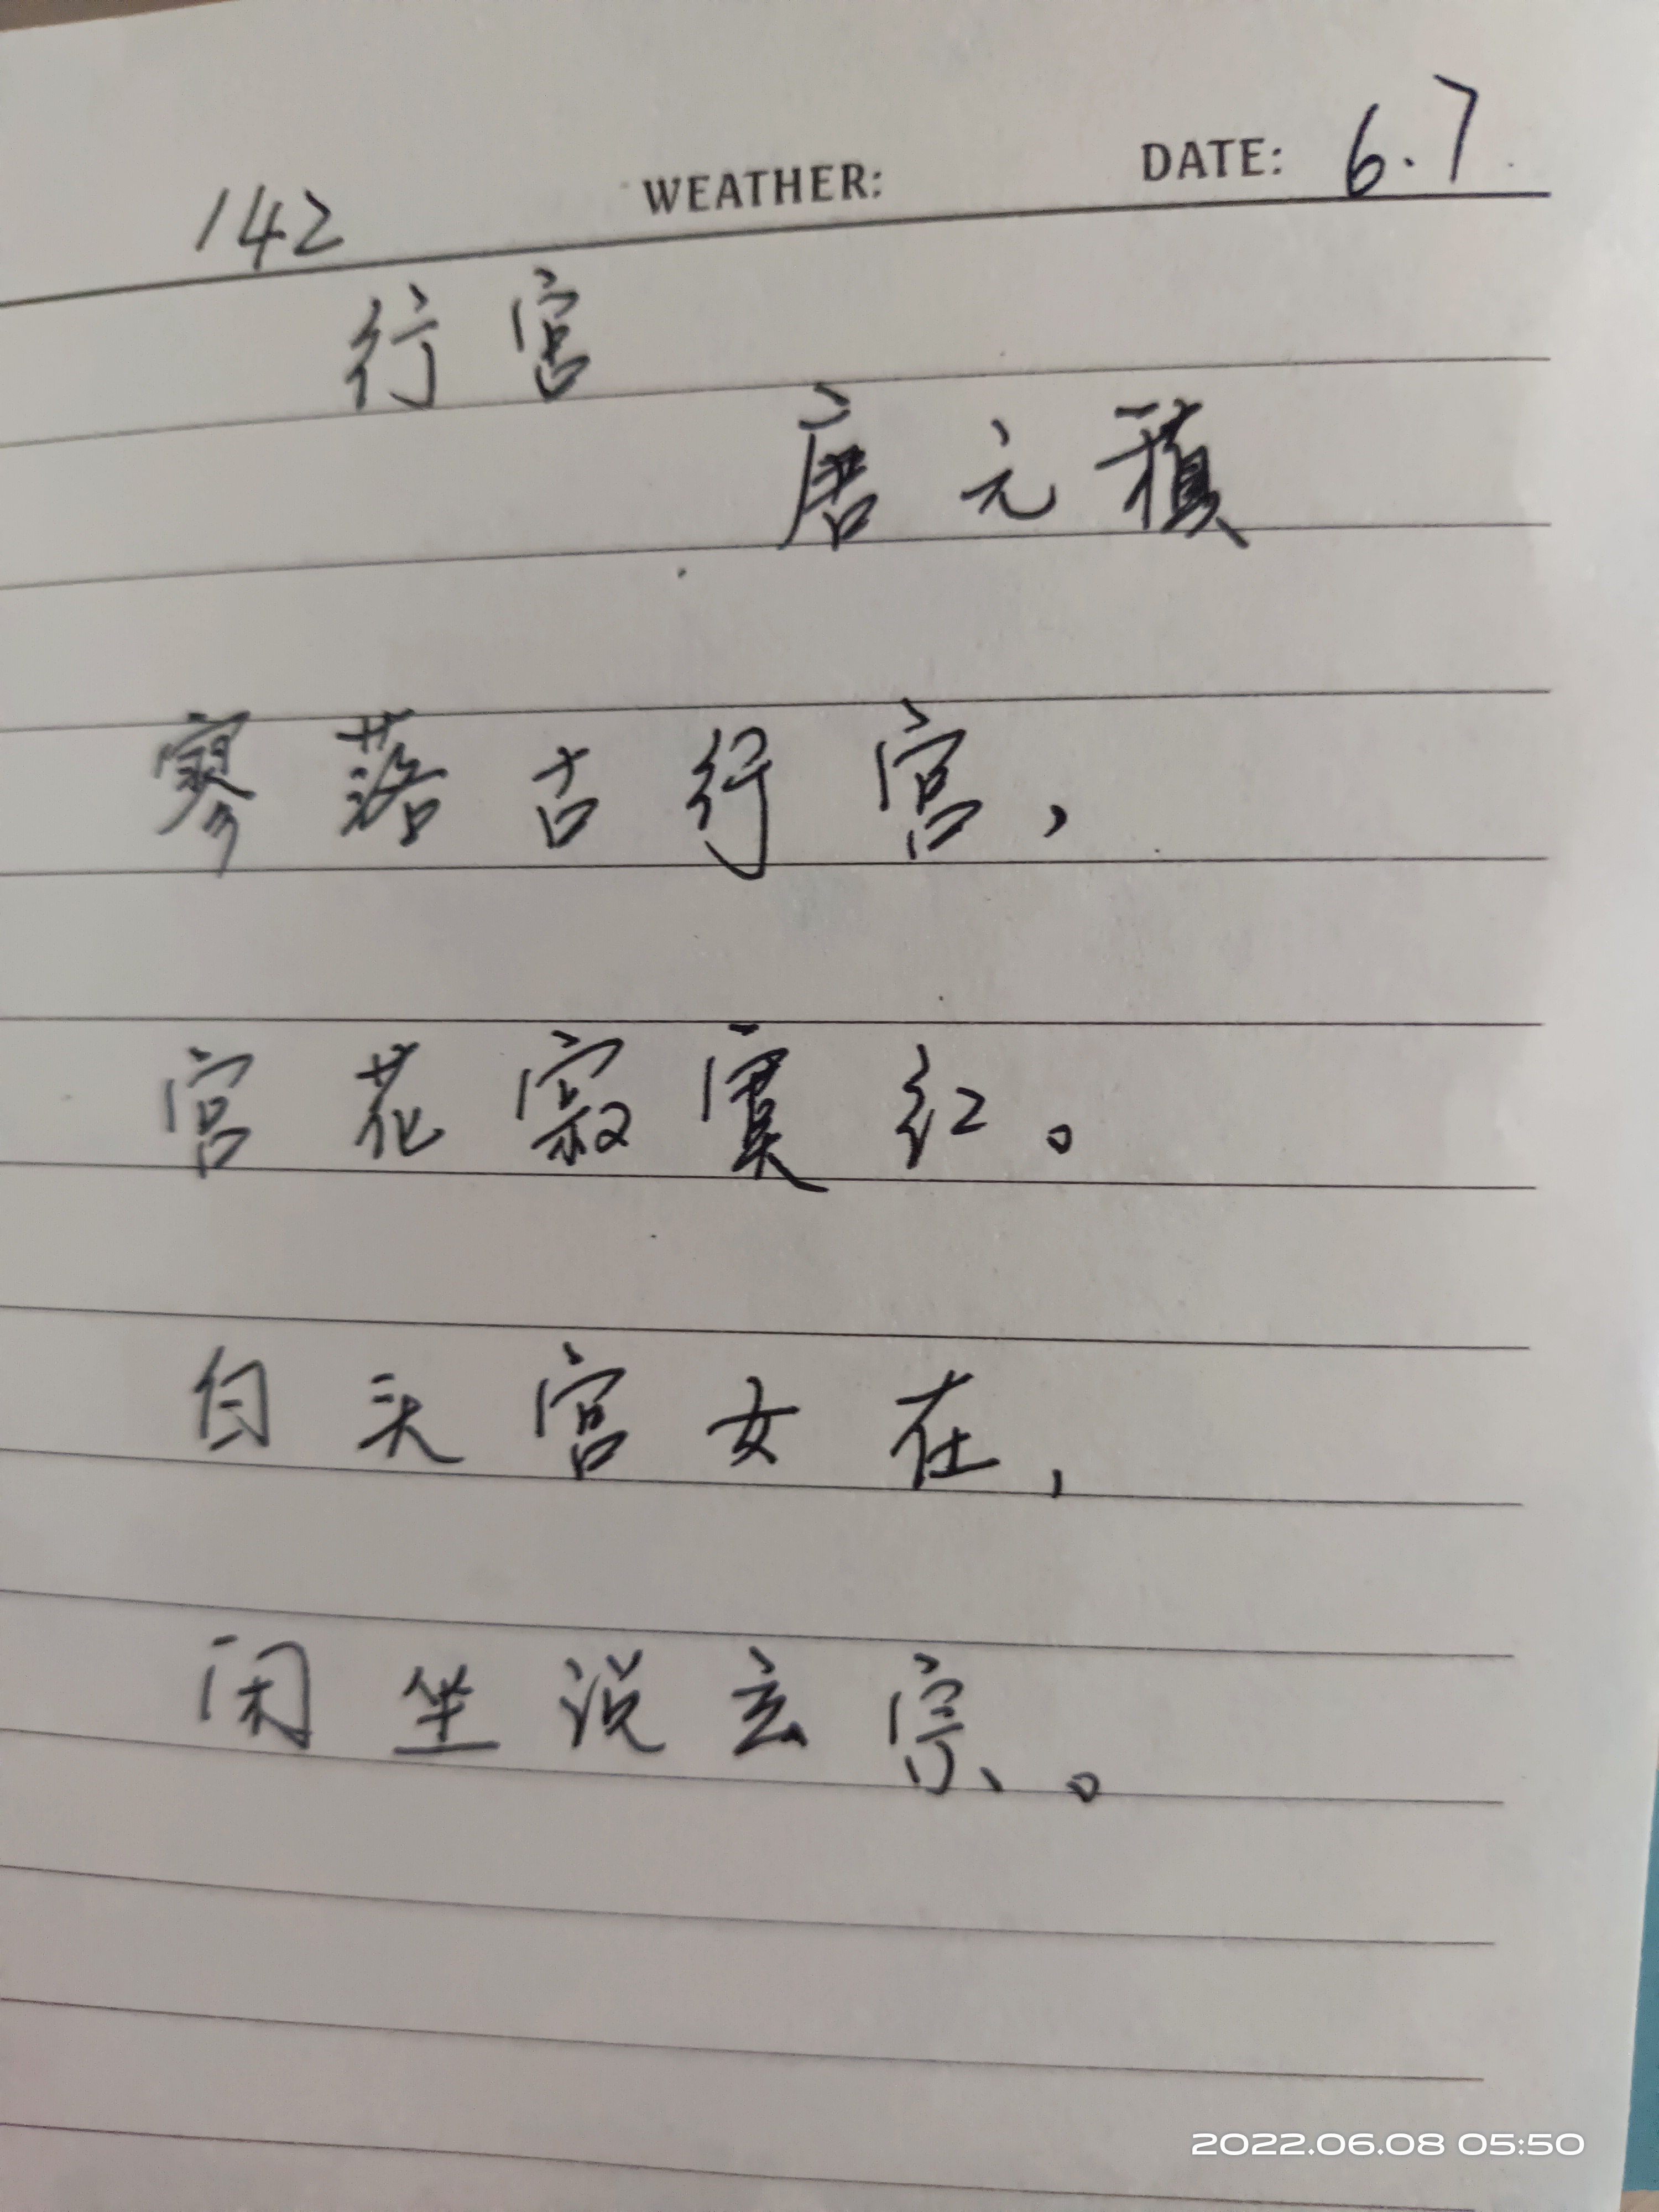 142 WEATHER: DATE: 6.7
行宫
唐 元稹
寥落古行宫，
宫花寂寞红。
白头宫女在，
闲坐说玄宗。
2022.06.08 05:50